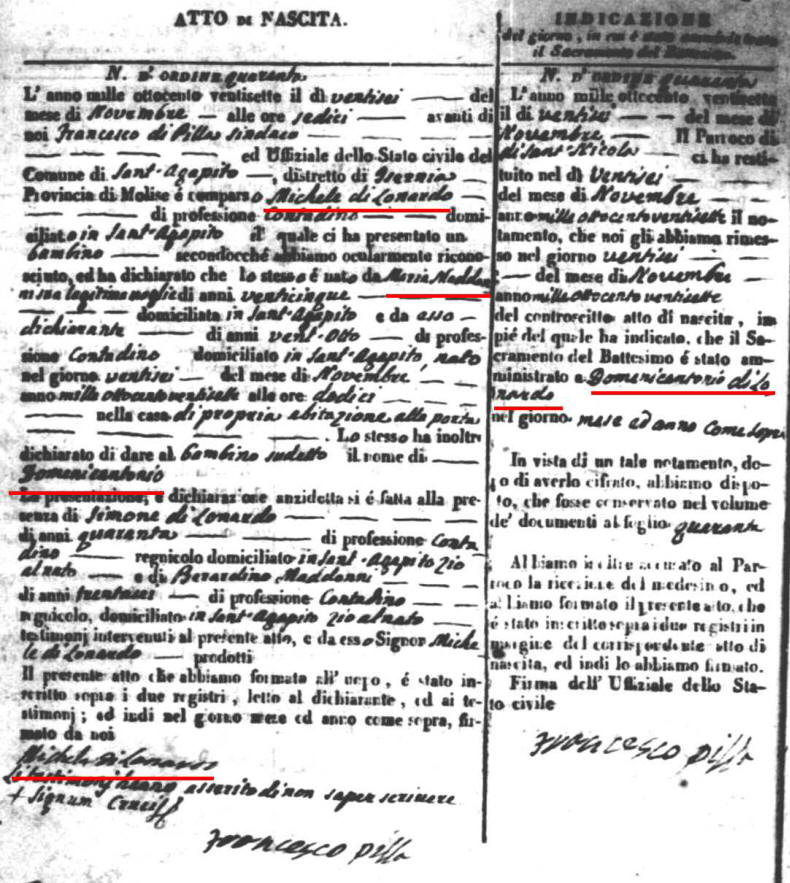 ATTO DI NASCITA.
N. D'ORDINE quaranta
L'anno mille ottocento ventisette il dì ventisei del
mese di Novembre alle ore sedici avanti di
noi Francesco di Pilla sindaco
ed Uffiziale dello Stato civile del
Comune di Sant'Agapito, distretto di Isernia
Provincia di Molise é comparso Michele di Lonardo
di professione Contadino domi-
ciliato in Sant'Agapito il quale ci ha presentato un
bambino secondocché abbiamo ocularmente ricono-
sciuto, ed ha dichiarato che lo stesso é nato da Maria Maddon
ni sua legittima moglie di anni venticinque
domiciliata in Sant'Agapito e da esso
dichiarante di anni vent'otto di profes-
sione Contadino domiciliato in Sant'Agapito, nato
nel giorno ventisei del mese di Novembre
anno mille ottocento ventisette alle ore dodici
nella casa di propria abitazione alla porta
Lo stesso ha inoltre
dichiarato di dare al bambino sudetto il nome di
Domenicantonio
La presentazione, e dichiarazione anzidetta si é fatta alla pre-
senza di Simone di Lonardo
di anni quaranta di professione Conta
dino regnicolo domiciliato in Sant'Agapito zio
al nato e di Berardino Maddonni
di anni trentasei di professione Contadino
regnicolo, domiciliato in Sant'Agapito zio al nato
testimonj intervenuti al presente atto, e da esso Signor Miche
le di Lonardo prodotti
Il presente atto che abbiamo formato all'uopo, é stato in-
scritto sopra i due registri, letto al dichiarante, ed ai te-
stimonj; ed indi nel giorno mese ed anno come sopra, fir-
mato da noi
Michele di Lonardo
Li testimonj hanno asserito di non saper scrivere
+ Signum Crucis
Francesco Pilla
INDICAZIONE
del giorno, in cui è stato amministrato
il Sacramento del Battesimo.
N. D'ORDINE quaranta
L'anno mille ottocento ventisette
il di ventisei del mese di
Novembre Il Parroco di
di Sant'Nicola ci ha resti-
tuito nel dì Ventisei
del mese di Novembre
anno mille ottocento ventisette il no-
tamento, che noi gli abbiamo rimes-
so nel giorno ventisei
del mese di Novembre
anno mille ottocento ventisette
del controscritto atto di nascita, in
pié del quale ha indicato, che il Sa-
cramento del Battesimo é stato am-
ministrato a Domenicantonio di Lo
nardo
nel giorno mese ed anno come sopra
In vista di un tale notamento, do-
po di averlo cifrato, abbiamo dispo-
to, che fosse conservato nel volume
de' documenti al foglio quaranta
Abbiamo inoltre accusato al Par-
roco la ricezione del medesimo, ed
abbiamo formato il presente atto, che
é stato inscritto sopra i due registri in
margine del corrispondente atto di
nascita, ed indi lo abbiamo firmato.
Firma dell'Uffiziale dello Sta-
to civile
Francesco Pilla